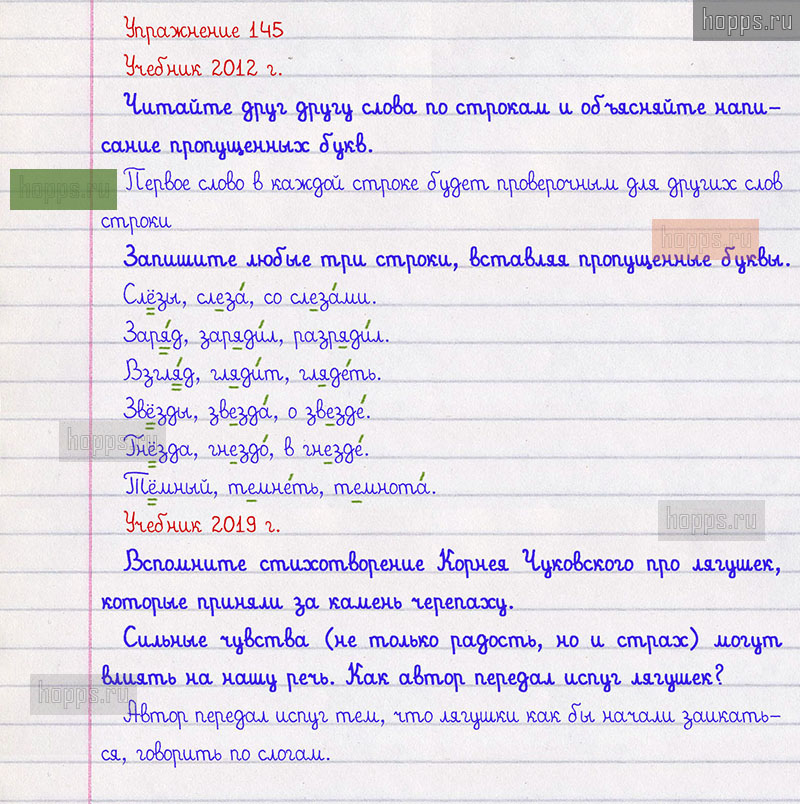 hopps.ru
Упражнение 145
Учебник 2012 г.
Читайте друг другу слова по строкам и объясняйте напи-
сание пропущенных букв.
hopps.ru
Первое слово в каждой строке будет проверочным для других слов
строки
hopps.ru
Запишите любые три строки, вставляя пропущенные буквы.
Слёзы, слеза́, со слеза́ми.
Заря́д, заряди́л, разряди́л.
Взгля́д, гляди́т, гляде́ть.
Звёзды, звезда́, о звезде́.
hopps.ru
Гнёзда, гнездо́, в гнезде́.
Тёмный, темне́ть, темнота́.
hopps.ru
Учебник 2019 г.
Вспомните стихотворение Корнея Чуковского про лягушек,
которые приняли за камень черепаху.
Сильные чувства (не только радость, но и страх) могут
влиять на нашу речь. Как автор передал испуг лягушек?
hopps.ru
Автор передал испуг тем, что лягушки как бы начали заикать-
ся, говорить по слогам.